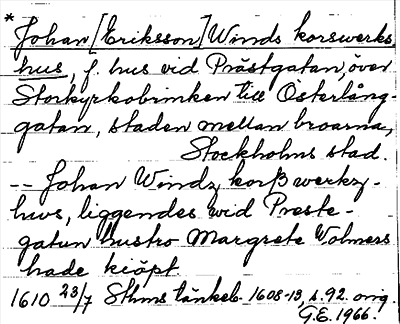 * Johan [Eriksson] Winds korswerks
hus, f. hus vid Prästgatan, över
Storkyrkobrinken till Österlång-
gatan, staden mellan broarna,
Stockholms stad.
-- Johan Windz korß werkz-
huus, liggendes wid Preste-
gatun hustro Margrete Wolmers
hade kiöpt
1610 23/7 Sthms tänkeb. 1608-13, s. 92. orig.
G.E. 1966.